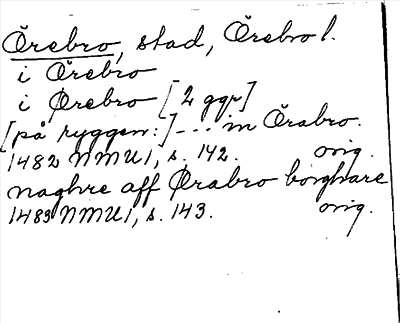 Örebro, stad, Örebro l.
i Örebro
i Ørebro [2 ggr]
[på ryggen:] --- in Örabro.
1482 NMU 1, s. 142. orig.
naghre aff Ørabro borghare
1483 NMU 1, s. 143. orig.